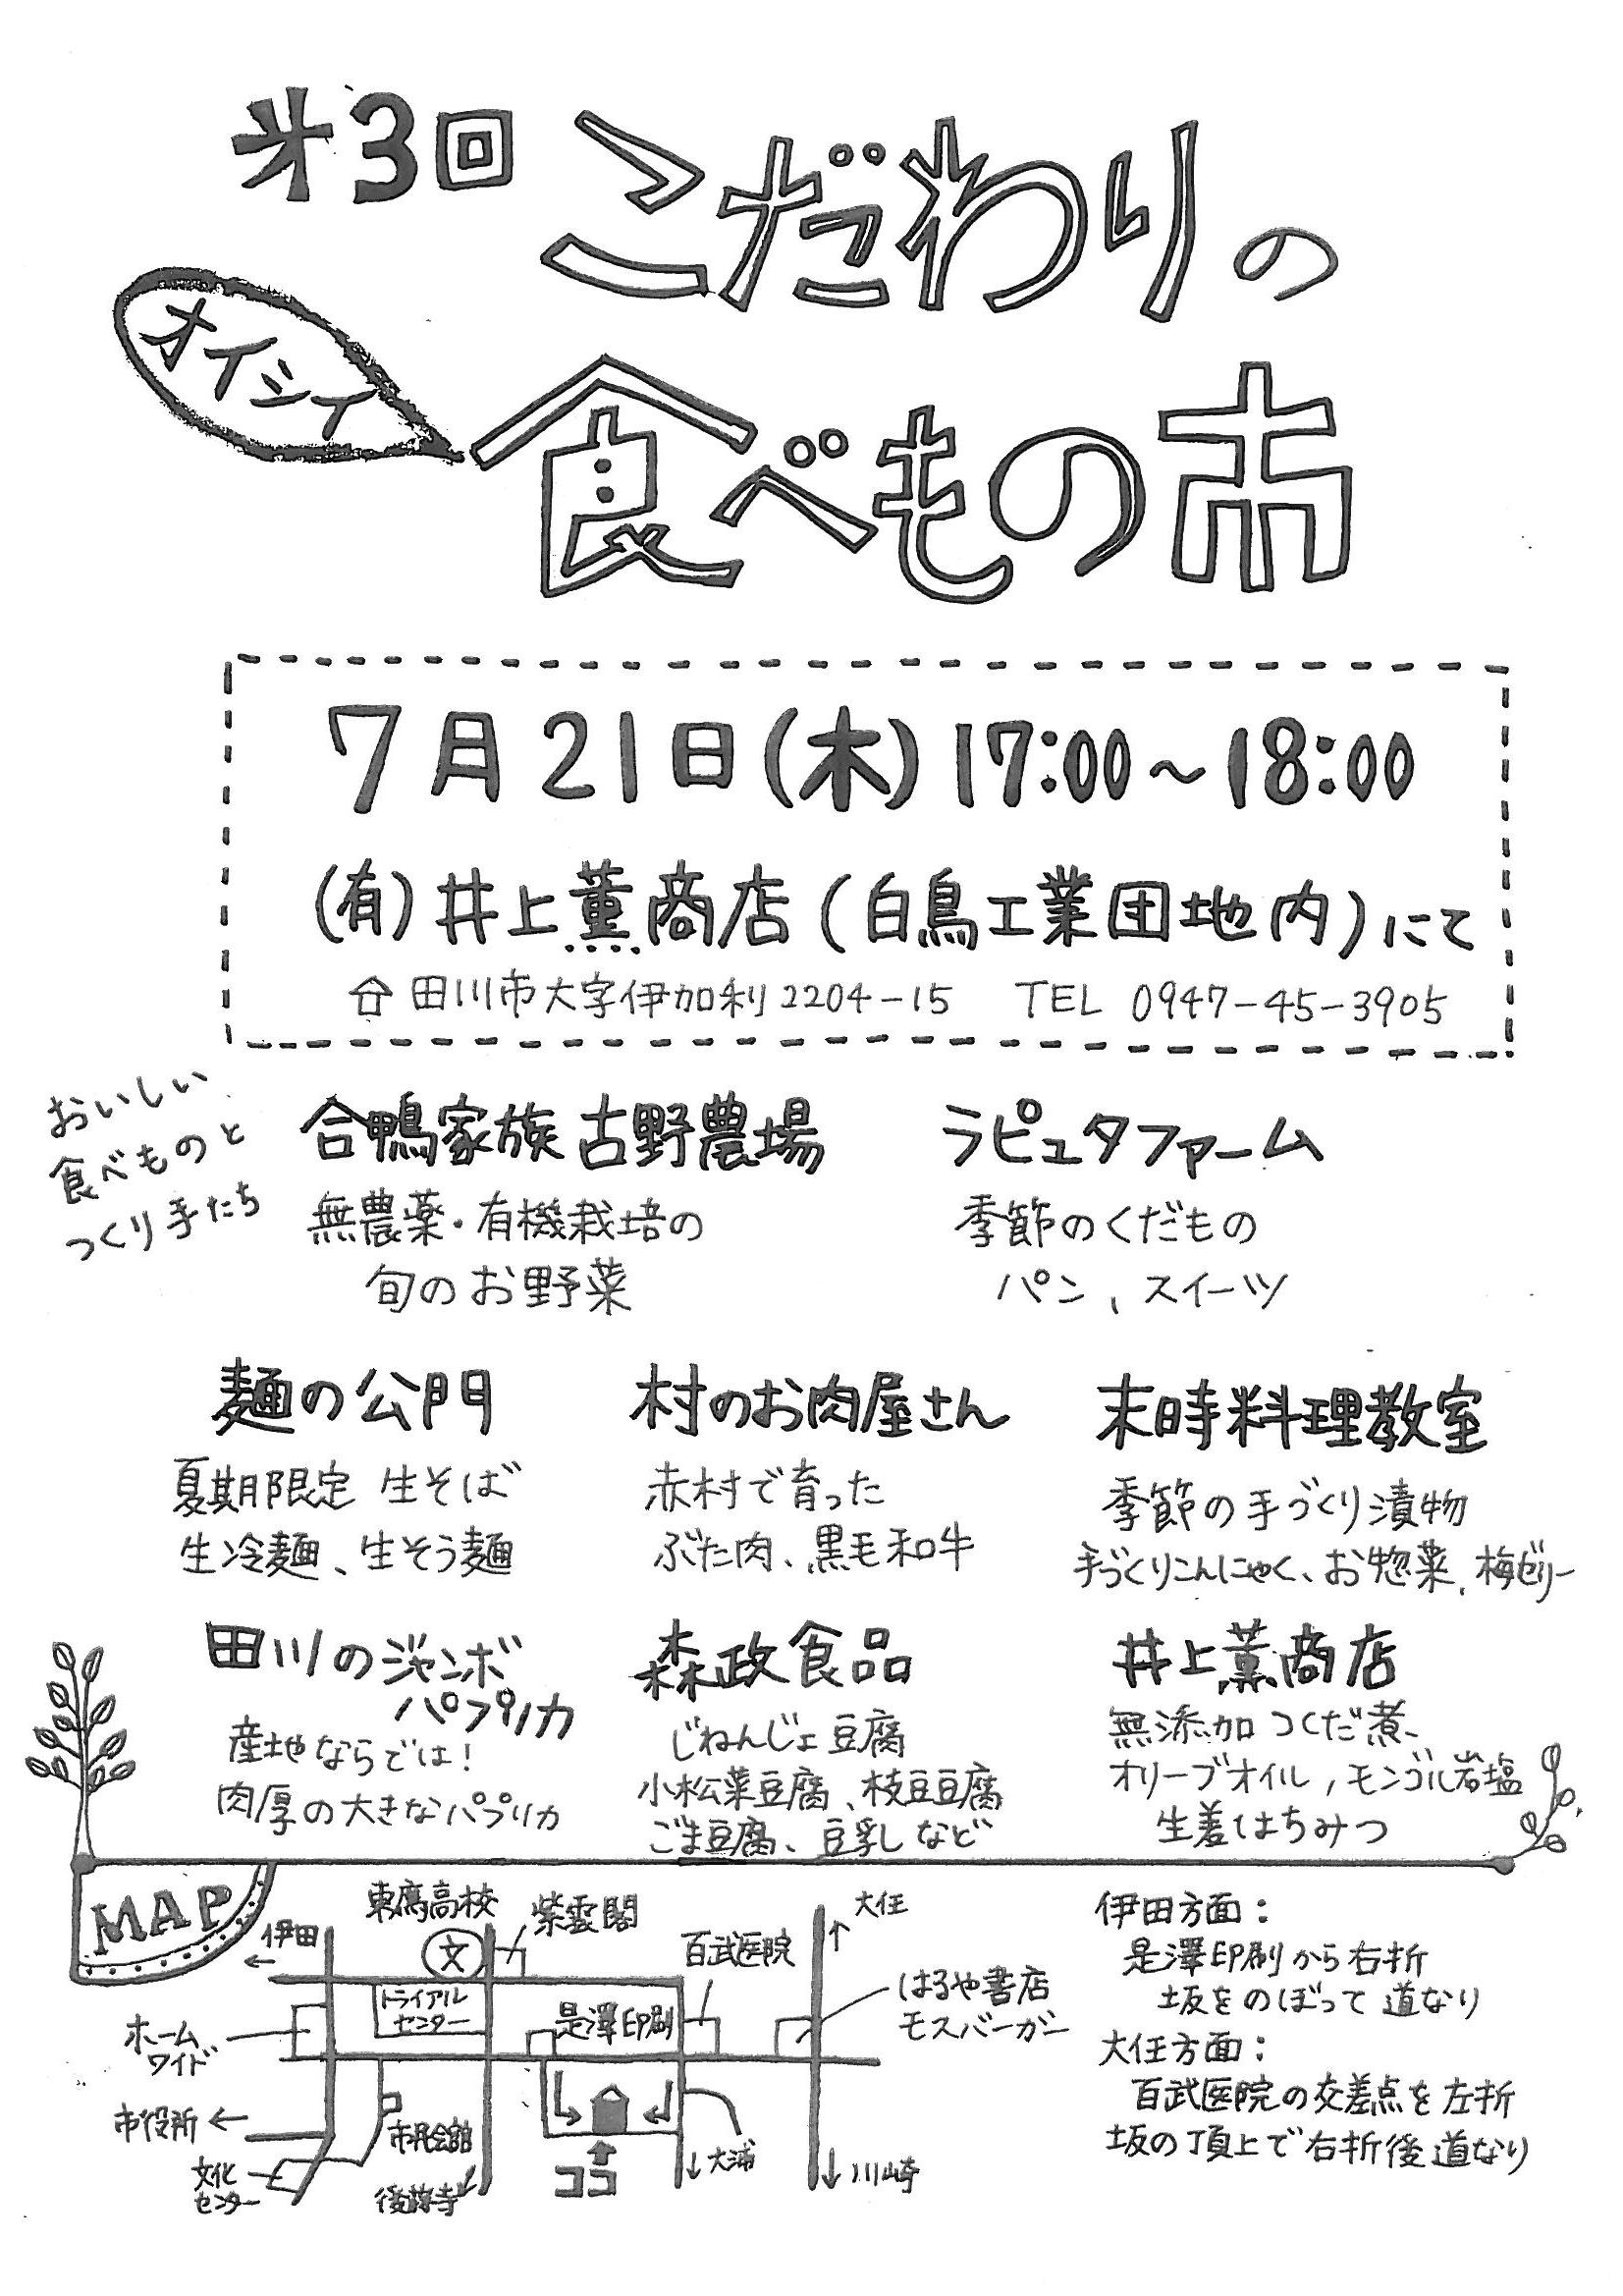 第3回 こだわりの
オイシイ
食べもの市
7月21日(木)17:00～18:00
(有)井上薫商店(白鳥工業団地内)にて
田川市大字伊加利2204-15 TEL 0947-45-3905
おいしい
食べものと
つくり手たち
合鴨家族 古野農場
無農薬・有機栽培の
旬のお野菜
ラピュタファーム
季節のくだもの
パン、スイーツ
麺の公門
夏期限定 生そば
生冷麺、生そう麺
村のお肉屋さん
赤村で育った
ぶた肉、黒毛和牛
末時料理教室
季節の手づくり漬物
手づくりこんにゃく、お惣菜、梅ゼリー
田川のジャンボ
パプリカ
産地ならでは!
肉厚の大きなパプリカ
森政食品
じねんじょ豆腐
小松菜豆腐、枝豆豆腐
ごま豆腐、豆乳など
井上薫商店
無添加つくだ煮、
オリーブオイル、モンゴル岩塩
生姜はちみつ
MAP
伊田
東鷹高校
文
紫雲閣
百武医院
大任
はるや書店
モスバーガー
トライアル
センター
是澤印刷
ホーム
ワイド
市役所
文化
センター
市民会館
後藤寺
ココ
大浦
川崎
伊田方面:
是澤印刷から右折
坂をのぼって道なり
大任方面:
百武医院の交差点を左折
坂の頂上で右折後道なり